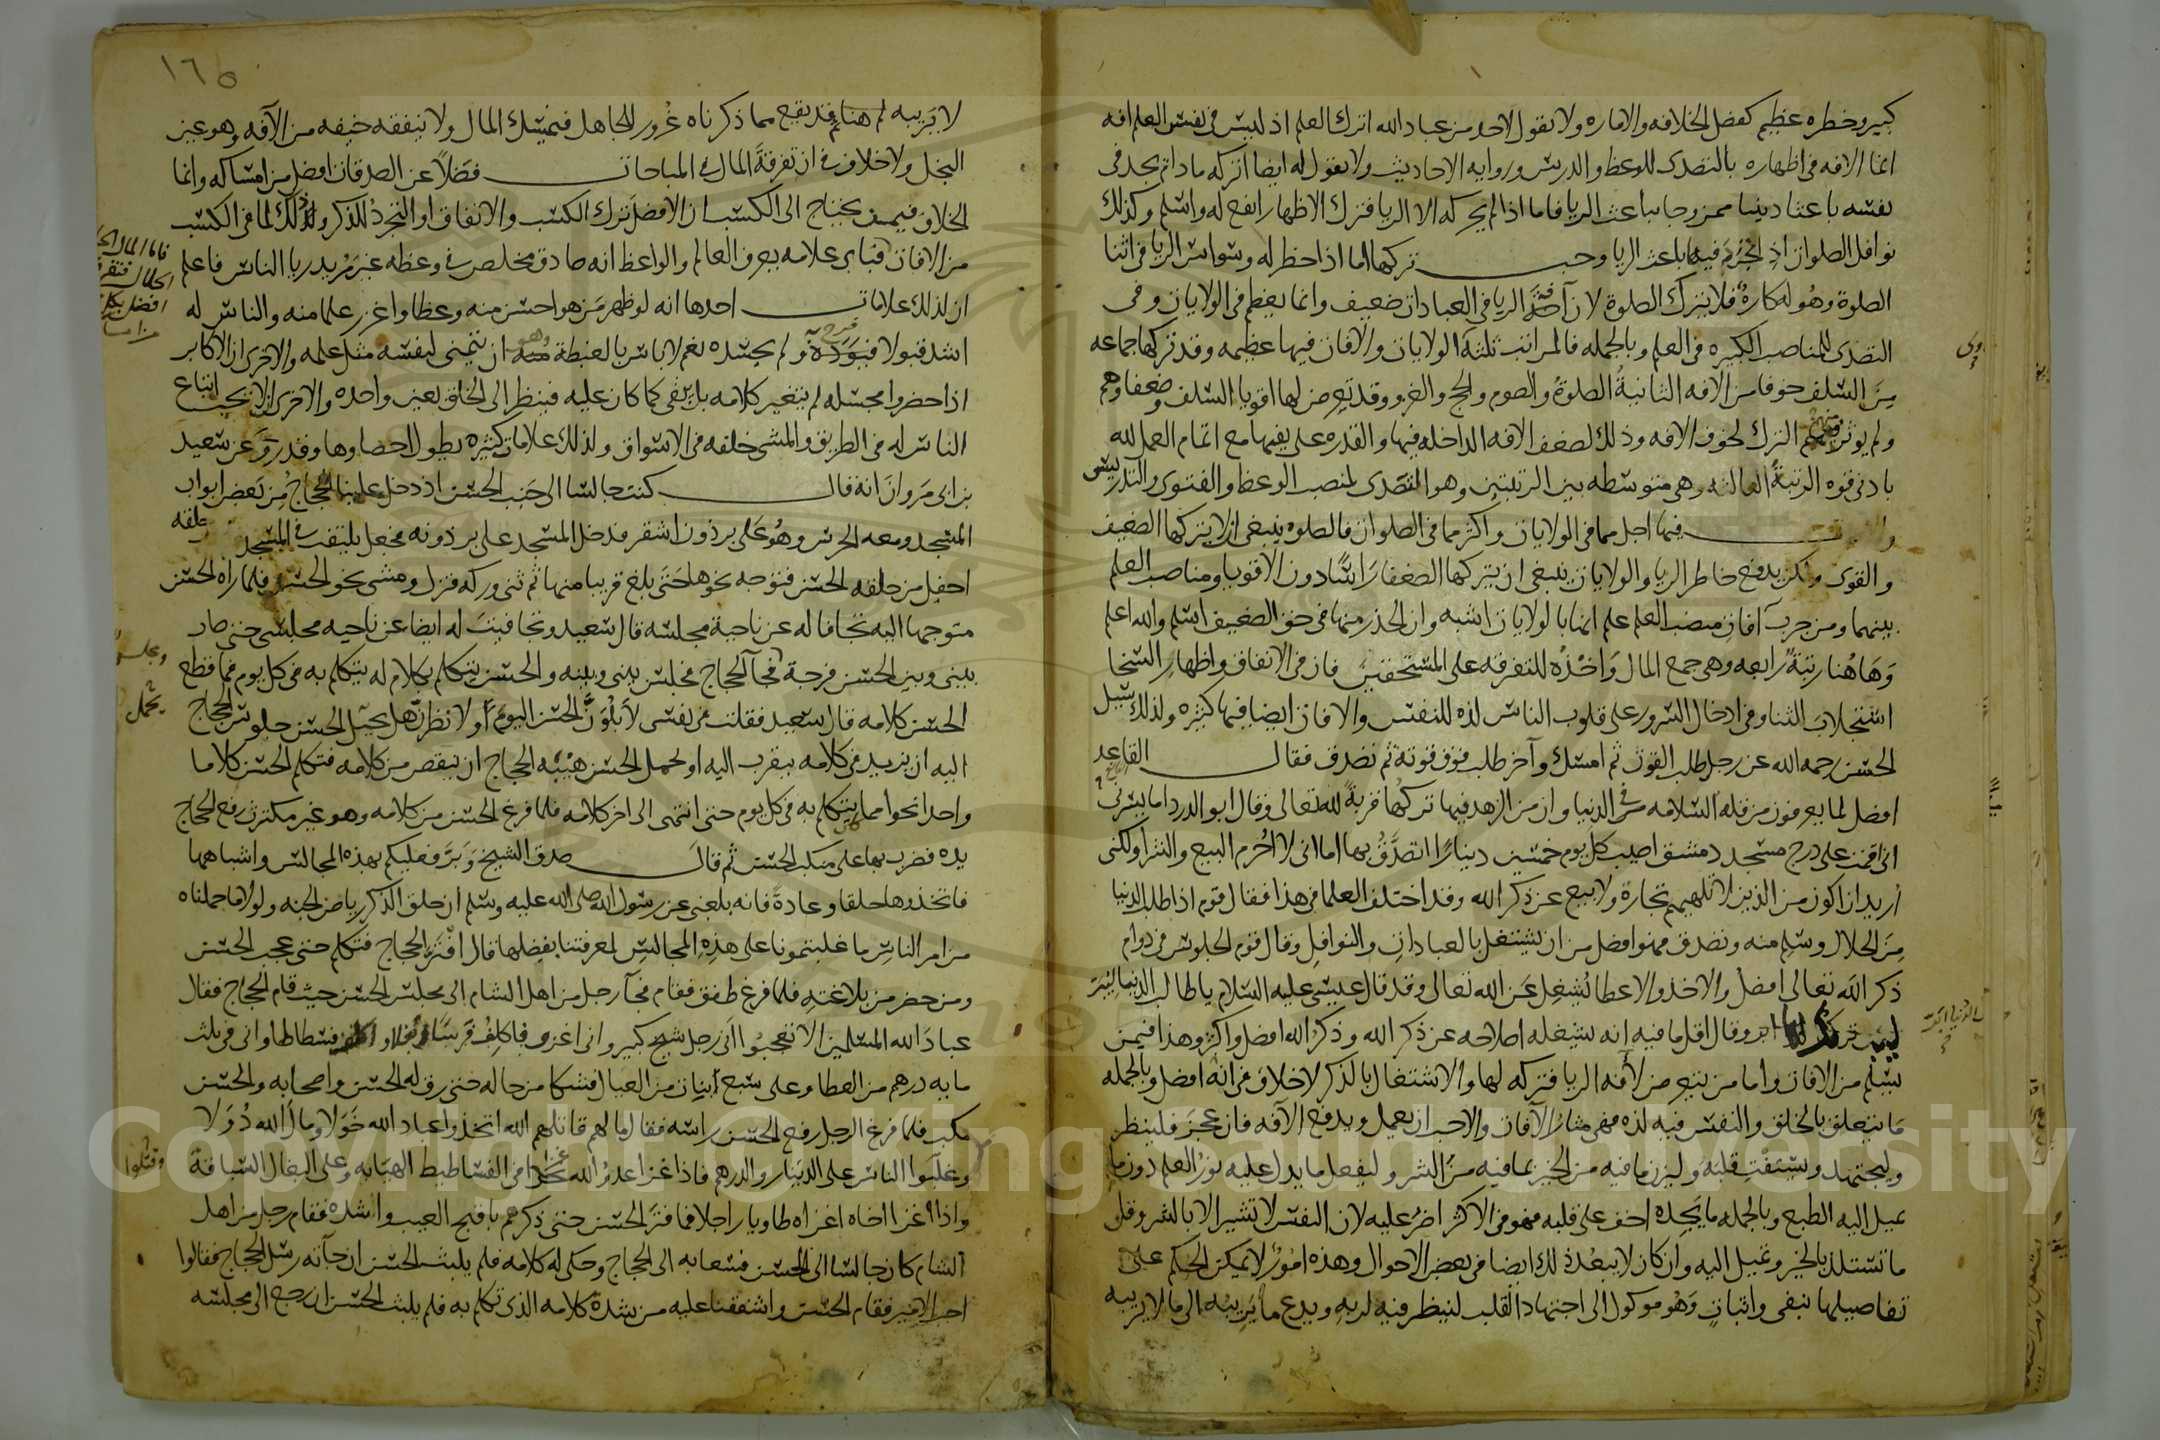 كبير وخطره عظيم كفضل الخلافه والاماره ولا نقول لاحد من عباد الله اترك العلم اذ ليس فى نفس العلم افه
انما الافه فى اظهاره بالتصدى للوعظ والدريس وروايه الاحاديث ولا نقول له ايضا اتركه مادام يجد فى
نفسه باعثا دينيا ممزوجا بباعث الريا فاما اذا لم يحركه الا الريا فترك الاظهار انفع له واسلم وكذلك
نوافل الصلوات اذا تجرد فيها باعث الريا وجب تركها اما اذا خطر له وسواس الريا فى اثنا
الصلوة وهو له كاره فلا يترك الصلوة لان آفة الريا فى العبادات ضعيف وانما يعظم فى الولايات وفى
التصدى للمناصب الكبيره فى العلم وبالجمله فالمراتب ثلثة الولايات والافات فيها عظيمه وقد تركها جماعه
من السلف خوفا من الافه الثانية الصلوة والصوم والحج والغزو وقد تعرض لها اقويا السلف وضعفاوهم
ولم يوثر عنهم الترك لخوف الافه وذلك لضعف الافه الداخله فيها والقدره على نفيها مع اتمام العمل لله
بادنى قوه الرتبة الثالثه وهى متوسطه بين الرتبتين وهو التصدى لمنصب الوعظ والفتوى والتدريس
فيها اجل مما فى الولايات واكثر مما فى الصلوات فالصلوه ينبغى ان لا يتركها الضعيف
والقوى ولكن يدفع خاطر الريا والولايات ينبغى ان يتركها الضعفا راسًا دون الاقويا ومناصب العلم
بينهما ومن جرب آفات منصب العلم علم انها بالولايات اشبه وان الحذر منها فى حق الضعيف اسلم والله اعلم
وهاهنا رتبة رابعه وهى جمع المال واخذه للتفرقه على المستحقين فان فى الانفاق واظهار السخا
استجلاب الثنا وفى ادخال السرور على قلوب الناس لذه للنفس والافات ايضا فيها كثيره ولذلك سيل
الحسن رحمه الله عن رجل طلب القوت ثم امسك وآخر طلب فوق قوته ثم تصدق فقال القاعد
افضل لما يعرفون من قله السلامه فى الدنيا وان من الزهد فيها تركها قربة لله تعالى وقال ابو الدردا ما يسرنى
انى اقمت على درج مسجد دمشق اصيب كل يوم خمسين دينارًا اتصدق بها اما انى لا احرم البيع والشرا ولكنى
اريد ان اكون من الذين لا تلهيهم تجارة ولا بيع عن ذكر الله وقد اختلف العلما فى هذا فقال قوم اذا طلب الدنيا
من الحلال وسلم منه وتصدق فهو افضل من ان يشتغل بالعبادات والنوافل وقال قوم الجلوس فى دوام
ذكر الله تعالى افضل والاخذ والاعطا يشغل عن الله تعالى وقد قال عيسى عليه السلام يا طالب الدنيا ليبر
ابر وقال اقل ما فيه انه يشغله اصلاحه عن ذكر الله وذكر الله افضل واكبر وهذا فيمن
يسلم من الافات واما من يتعرض لأفه الريا فتركه لها والاشتغال بالذكر لا خلاف فى انه افضل وبالجمله
ما يتعلق بالخلق والنفس فيه لذه فهى مثار الآفات والاحب ان يعمل ويدفع الآفه فان عجز فلينظر
وليجتهد ويستفت قلبه وليزن ما فيه من الخير بما فيه من الشر وليفعل ما يدل عليه نور العلم دون ما
يميل اليه الطبع وبالجمله ما يجده اخف على قلبه فهو فى الاكثر اضر عليه لان النفس لا تشير الا بالشر وقل
ما تستلذ بالخير وتميل اليه وان كان لا يبعد ذلك ايضا فى بعض الاحوال وهذه امور لا يمكن الحكم على
تفاصيلها بنفى واثبات وهو موكول الى اجتهاد القلب لينظر فيه لدينه ويدع ما يريبه الى ما لا يريبه
١٦٥
لا يريبه ثم هنا قد يقع مما ذكرناه غرور للجاهل فيمسك المال ولا ينفقه خيفه من الآفه وهو عين
البخل ولا خلاف فى ان تفرقة المال فى المباحات فضلا عن الصدقات افضل من امساكه وانما
الخلاف فيمن يحتاج الى الكسب ان الافضل ترك الكسب والانفاق او التجرد للذكر وذلك لما فى الكسب
من الافات فباى علامه يعرف العالم والواعظ انه صادق مخلص فى وعظه غير مريد ريا الناس فاعلم
ان لذلك علامات احدها انه لو ظهر من هو احسن منه وعظا واغزر علما منه والناس له
اشد قبولا فرح به ولم يحسده نعم لا باس بالغبطة وهو ان يتمنى لنفسه مثل علمه والاخرى ان الاكابر
اذا حضروا مجلسه لم يتغير كلامه بل بقى كما كان عليه فينظر الى الخلق بعين واحده والاخرى ان لا يحب اتباع
الناس له فى الطريق والمشى خلفه فى الاسواق ولذلك علامات كثيره يطول احصاوها وقد روى عن سعيد
بن ابى مروان انه قال كنت جالسا الى جنب الحسن اذ دخل علينا الحجاج من بعض ابواب
المسجد ومعه الحرس وهو على برذون اشقر فدخل المسجد على برذونه فجعل يلتفت فى المسجد حلقه
احفل من حلقه الحسن فتوجه نحوها حتى بلغ قريبا منها ثم ثنى وركه فنزل ومشى نحو الحسن فلما راه الحسن
متوجها اليه تجافا له عن ناحية مجلسه قال سعيد وتجافيت له ايضا عن ناحيه مجلسى حتى صار
بينى وبين الحسن فرجة فجآ الحجاج فجلس بينى وبينه والحسن يتكلم بكلام له يتكلم به فى كل يوم فما قطع
الحسن كلامه قال سعيد فقلت فى نفسى لابلون الحسن اليوم ولانظرن هل يحمل الحسن جلوس الحجاج
اليه ان يزيد فى كلامه يتقرب اليه او يحمل الحسن هيبه الحجاج ان ينقص من كلامه فتكلم الحسن كلاما
واحدا نحوا مما يتكلم به فى كل يوم حتى انتهى الى اخر كلامه فلما فرغ الحسن من كلامه وهو غير مكترث رفع الحجاج
يده فضرب بها على منكب الحسن ثم قال صدق الشيخ وبر فعليكم بهذه المجالس واشباهها
فاتخذوها حلقا وعادة فانه بلغنى عن رسول الله صلى الله عليه وسلم ان حلق الذكر رياض الجنه ولولا ما حملناه
من امر الناس ما غلبتمونا على هذه المجالس لمعرفتنا بفضلها قال افتر الحجاج فتكلم حتى عجب الحسن
ومن حضر من بلاغته فلما فرغ طفق فقام فجآ رجل من اهل الشام الى مجلس الحسن حيث قام الحجاج فقال
عباد الله المسلمين الا تعجبوا انى رجل شيخ كبير وانى اغزو فاكلف فرسًا وبغلا واكلف فسطاطا وانى فى ثلث
مايه درهم من العطا وعلى سبع بنات من العيال فشكا من حاله حتى رق له الحسن واصحابه والحسن
مكب فلما فرغ الرجل رفع الحسن راسه فقال ما لهم قاتلهم الله اتخذوا عباد الله خولا ومال الله دولا
وغلبوا الناس على الدينار والدرهم فاذا غزا عدو الله غزا فى الفساطيط الهبابه وعلى البغال السباقة
واذا اغزا اخاه اغزاه طاويا راجلا فما فتر الحسن حتى ذكرهم باقبح العيب واشده فقام رجل من اهل
الشام كان جالسا الى الحسن فسعا به الى الحجاج وحكى له كلامه فلم يلبث الحسن ان جآته رسل الحجاج فقالوا
اجب الامير فقام الحسن واشفقنا عليه من شدة كلامه الذى تكلم به فلم يلبث الحسن ان رجع الى مجلسه
وقتلوا
يحمل
Copyright © King Saud University